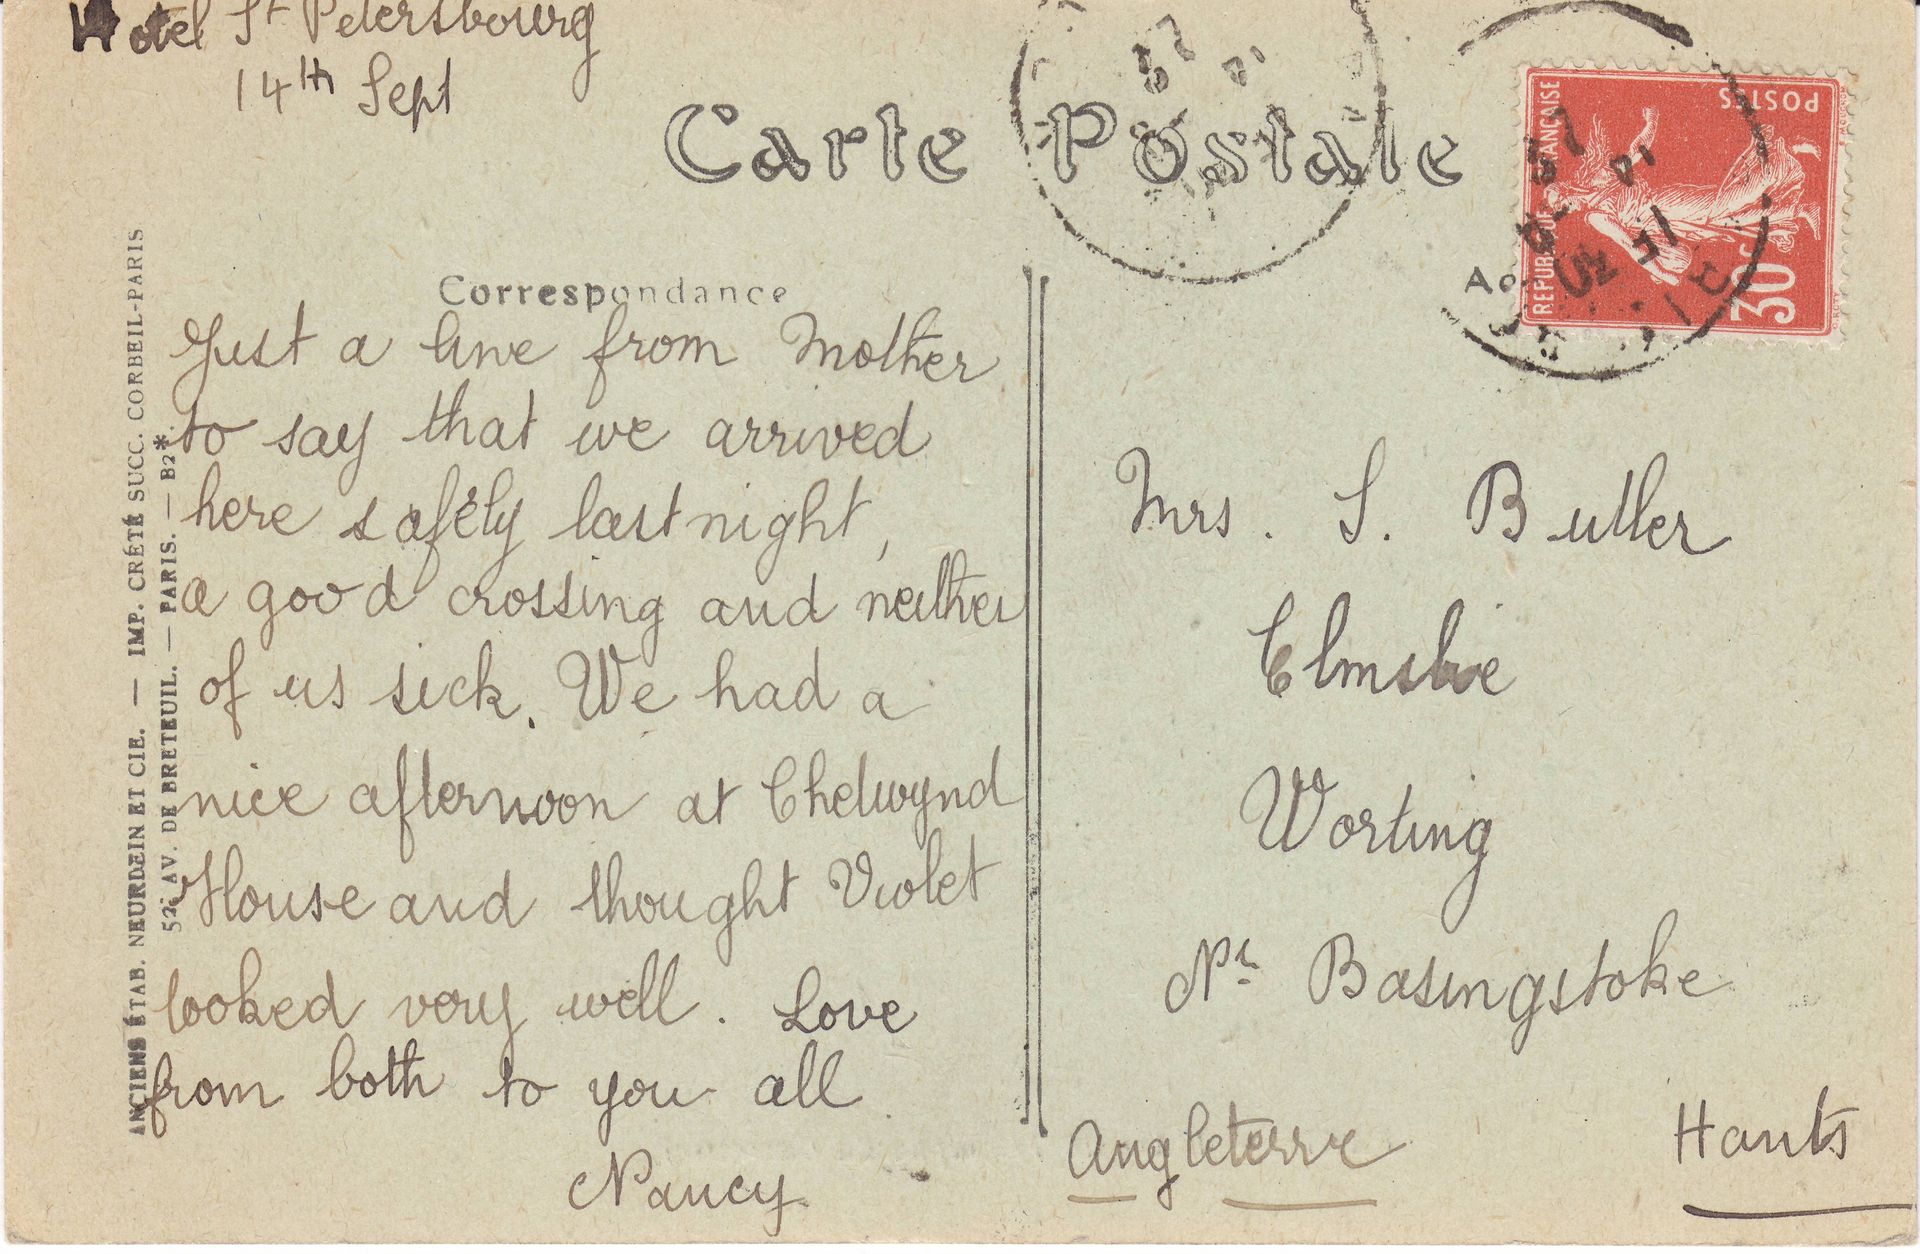 Hotel St Petersbourg
14th Sept
Carte Postale
Correspondance
Just a line from Mother
to say that we arrived
here safely last night,
a good crossing and neither
of us sick. We had a
nice afternoon at Chelwynd
House and thought Violet
looked very well. Love
from both to you all
Nancy
Mrs. S. Butler
Elmslie
Worting
Nr Basingstoke
Hants
Angleterre
ANCIENS ÉTAB. NEURDEIN ET CIE. — IMP. CRÉTÉ SUCC. CORBEIL-PARIS
52, AV. DE BRETEUIL. — PARIS. — B2*.
REPUBLIQUE FRANÇAISE
POSTES
30c